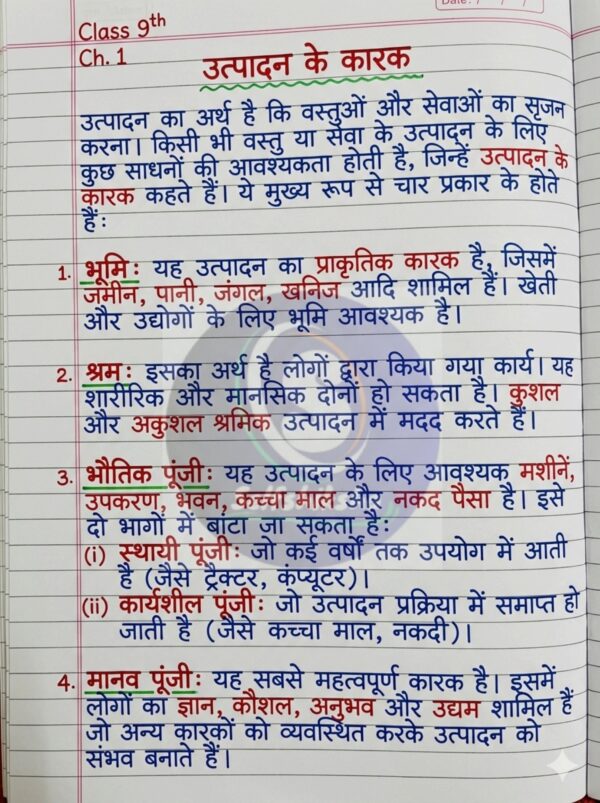 Date: / / /
Class 9th
Ch. 1
उत्पादन के कारक
उत्पादन का अर्थ है कि वस्तुओं और सेवाओं का सृजन
करना। किसी भी वस्तु या सेवा के उत्पादन के लिए
कुछ साधनों की आवश्यकता होती है, जिन्हें उत्पादन के
कारक कहते हैं। ये मुख्य रूप से चार प्रकार के होते
हैं:
1. भूमि: यह उत्पादन का प्राकृतिक कारक है, जिसमें
जमीन, पानी, जंगल, खनिज आदि शामिल हैं। खेती
और उद्योगों के लिए भूमि आवश्यक है।
2. श्रम: इसका अर्थ है लोगों द्वारा किया गया कार्य। यह
शारीरिक और मानसिक दोनों हो सकता है। कुशल
और अकुशल श्रमिक उत्पादन में मदद करते हैं।
3. भौतिक पूंजी: यह उत्पादन के लिए आवश्यक मशीनें,
उपकरण, भवन, कच्चा माल और नकद पैसा है। इसे
दो भागों में बांटा जा सकता है:
(i) स्थायी पूंजी: जो कई वर्षों तक उपयोग में आती
है (जैसे ट्रैक्टर, कंप्यूटर)।
(ii) कार्यशील पूंजी: जो उत्पादन प्रक्रिया में समाप्त हो
जाती है (जैसे कच्चा माल, नकदी)।
4. मानव पूंजी: यह सबसे महत्वपूर्ण कारक है। इसमें
लोगों का ज्ञान, कौशल, अनुभव और उद्यम शामिल हैं
जो अन्य कारकों को व्यवस्थित करके उत्पादन को
संभव बनाते हैं।